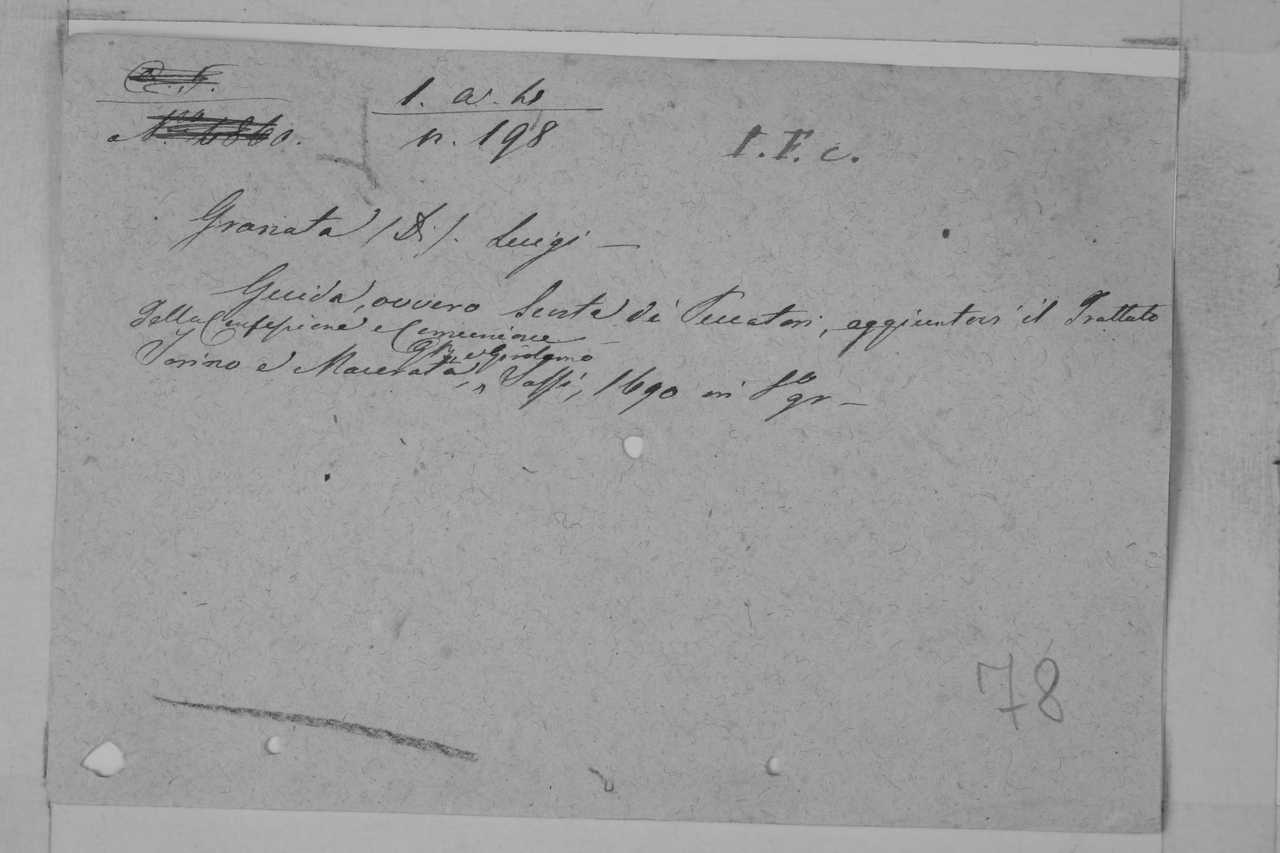 1. a. h
n. 198
I. F. c.
Granata (Di). Luigi —
Guida, ovvero Scorta di Peccatori, aggiuntovi il Trattato
della Confessione e Comunione
Torino e Macerata, Gir e Girolamo Sassi, 1690 in 8o gr —
78